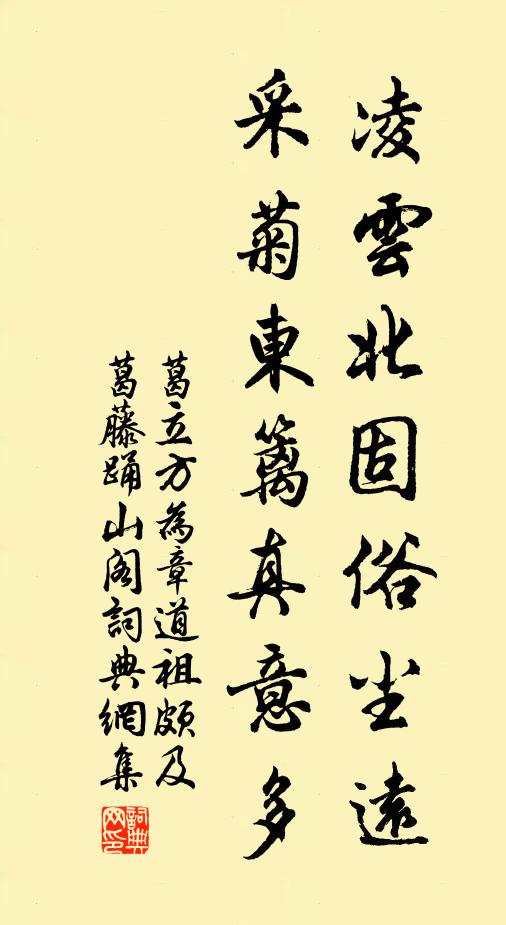 凌雲北固俗尘遠
采菊東篱真意多
葛立方為章道祖頗及
葛藤踊山阁詞典網集
詞典网印